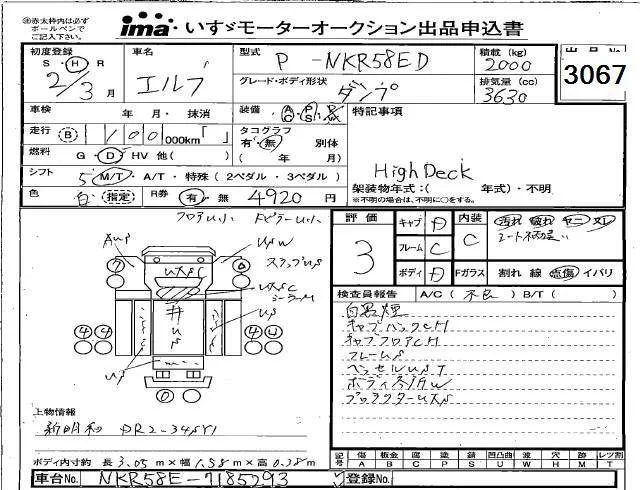 ㊟赤太枠内は必ず
ボールペンで
ご記入下さい。
ima いすゞモーターオークション出品申込書
初度登録 車名 型式 P-NKR58ED 積載 (kg) 2000 出品No
S・H・R
2/3月 エルフ グレード・ボディ形状 ダンプ 排気量 (cc) 3630 3067
車検 年・月・抹消 装備 特記事項
走行 B 100 000km「 」 タコグラフ 有・無 別体
燃料 G・D・HV 他( ) ( 年 月)
シフト 5 M/T・A/T・特殊(2ペダル・3ペダル) High Deck
架装物年式:( 年式)・不明
色 白(指定) R券 有・無 4920円 ※不明の場合は、不明に○をする。
フロアUS
評価 3
キャブ D 内装 C 汚れ 破れ ヤニ スレ
シート状態悪い
フレーム C
ボディ D Fガラス 割れ 線 点傷 イバリ
検査員報告 A/C( 不良 )B/T( )
白黒煙
キャブバックCH
キャブフロアCH
フレームS
ベッセルUST
上物情報
新明和 DR2-34SY1
ボディ内寸約 長3.05m×幅1.58m×高0.28m
記号 傷A 板金B 腐C 塗P 錆S 凹凸曲U 波W 穴H 跡M レツ割T
車台No. NKR58E-7185293 登録No.